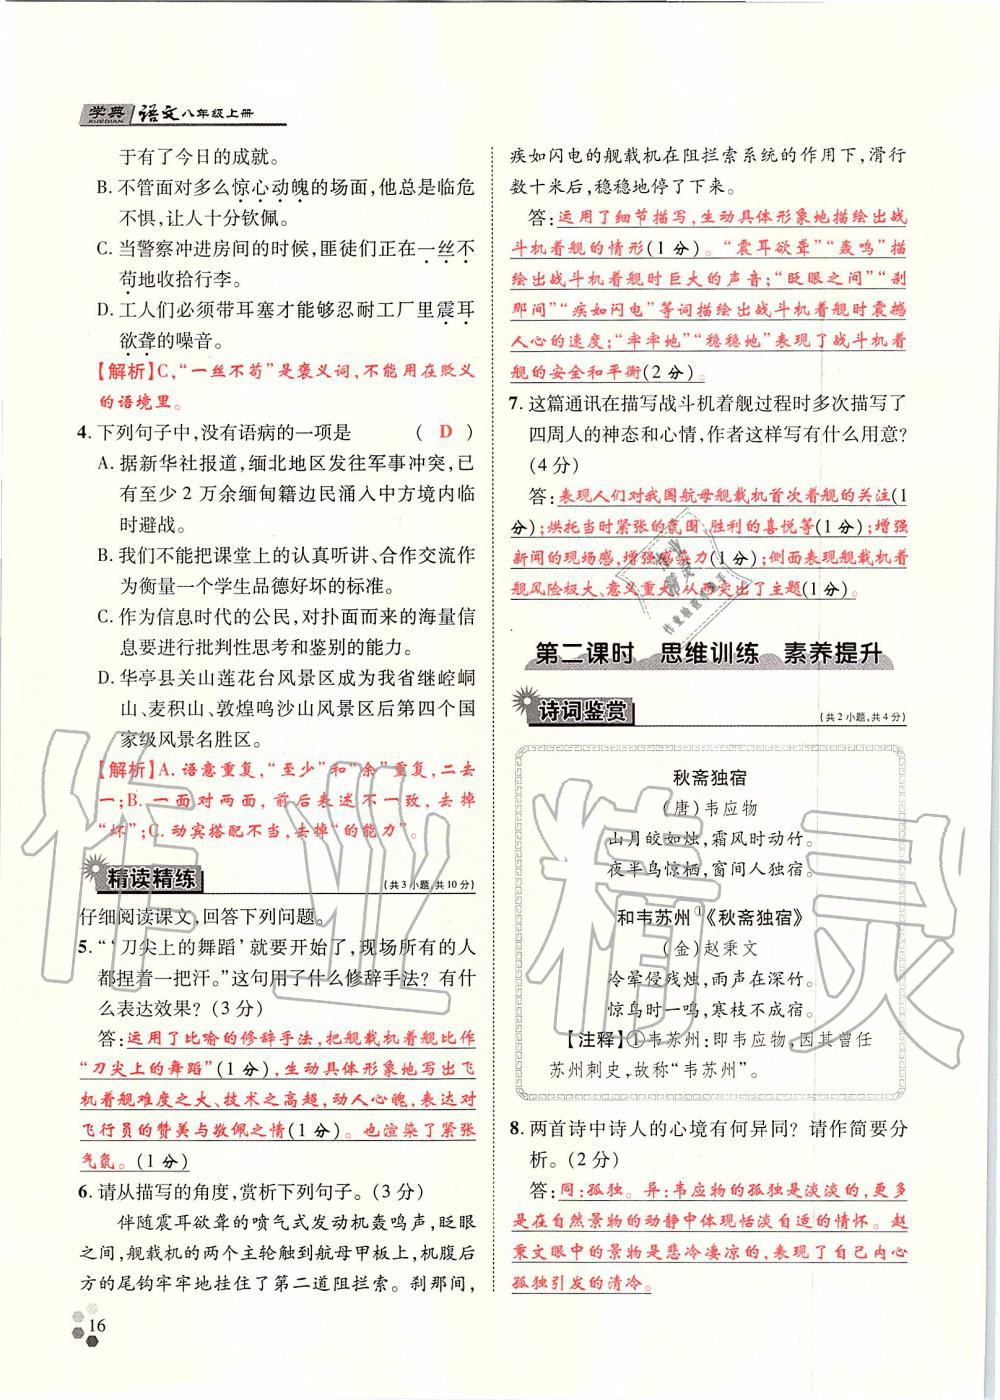 学典 XUEDIAN 语文八年级上册
于有了今日的成就。
B. 不管面对多么惊心动魄的场面,他总是临危
不惧,让人十分钦佩。
C. 当警察冲进房间的时候,匪徒们正在一丝不
苟地收拾行李。
D. 工人们必须带耳塞才能够忍耐工厂里震耳
欲聋的噪音。
【解析】C,“一丝不苟”是褒义词,不能用在贬义
的语境里。
4. 下列句子中,没有语病的一项是 ( D )
A. 据新华社报道,缅北地区发往军事冲突,已
有至少 2 万余缅甸籍边民涌入中方境内临
时避战。
B. 我们不能把课堂上的认真听讲、合作交流作
为衡量一个学生品德好坏的标准。
C. 作为信息时代的公民,对扑面而来的海量信
息要进行批判性思考和鉴别的能力。
D. 华亭县关山莲花台风景区成为我省继崆峒
山、麦积山、敦煌鸣沙山风景区后第四个国
家级风景名胜区。
【解析】A. 语意重复,“至少”和“余”重复,二去
一;B. 一面对两面,前后表述不一致,去掉
“坏”;C. 动宾搭配不当,去掉“的能力”。
精读精练 (共3小题,共10分)
仔细阅读课文,回答下列问题。
5. “‘刀尖上的舞蹈’就要开始了,现场所有的人
都捏着一把汗。”这句用了什么修辞手法？有什
么表达效果？(3分)
答:运用了比喻的修辞手法,把舰载机着舰比作
“刀尖上的舞蹈”(1分),生动具体形象地写出飞
机着舰难度之大、技术之高超,动人心魄,表达对
飞行员的赞美与敬佩之情(1分)。也渲染了紧张
气氛。(1分)
6. 请从描写的角度,赏析下列句子。(3分)
伴随震耳欲聋的喷气式发动机轰鸣声,眨眼
之间,舰载机的两个主轮触到航母甲板上,机腹后
方的尾钩牢牢地挂住了第二道阻拦索。刹那间,
16
疾如闪电的舰载机在阻拦索系统的作用下,滑行
数十米后,稳稳地停了下来。
答:运用了细节描写,生动具体形象地描绘出战
斗机着舰的情形(1分)。“震耳欲聋”“轰鸣”描
绘出战斗机着舰时巨大的声音;“眨眼之间”“刹
那间”“疾如闪电”等词描绘出战斗机着舰时震撼
人心的速度;“牢牢地”“稳稳地”表现了战斗机着
舰的安全和平衡(2分)。
7. 这篇通讯在描写战斗机着舰过程时多次描写了
四周人的神态和心情,作者这样写有什么用意?
(4分)
答:表现人们对我国航母舰载机首次着舰的关注(1
分);烘托当时紧张的氛围、胜利的喜悦等(1分);增强
新闻的现场感,增强感染力(1分);侧面表现舰载机着
舰风险极大、意义重大,从而突出了主题(1分)。
第二课时 思维训练 素养提升
诗词鉴赏 (共2小题,共4分)
秋斋独宿
(唐)韦应物
山月皎如烛,霜风时动竹。
夜半鸟惊栖,窗间人独宿。
和韦苏州①《秋斋独宿》
(金)赵秉文
冷晕侵残烛,雨声在深竹。
惊鸟时一鸣,寒枝不成宿。
【注释】①韦苏州:即韦应物,因其曾任
苏州刺史,故称“韦苏州”。
8. 两首诗中诗人的心境有何异同? 请作简要分
析。(2分)
答:同:孤独。异:韦应物的孤独是淡淡的,更多
是在自然景物的动静中体现恬淡自适的情怀。赵
秉文眼中的景物是悲冷凄凉的,表现了自己内心
孤独引发的清冷。
作业精灵